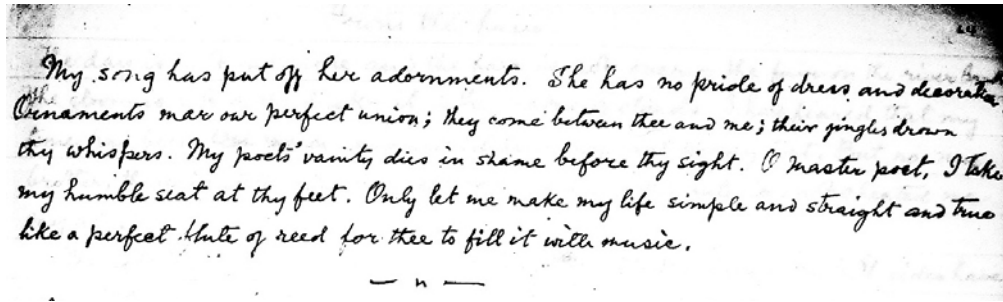 My song has put off her adornments. She has no pride of dress and decoration.
Ornaments mar our perfect union; they come between thee and me; their jingles drown
thy whispers. My poets' vanity dies in shame before thy sight. O master poet, I take
my humble seat at thy feet. Only let me make my life simple and straight and true
like a perfect flute of reed for thee to fill it with music.
— n —